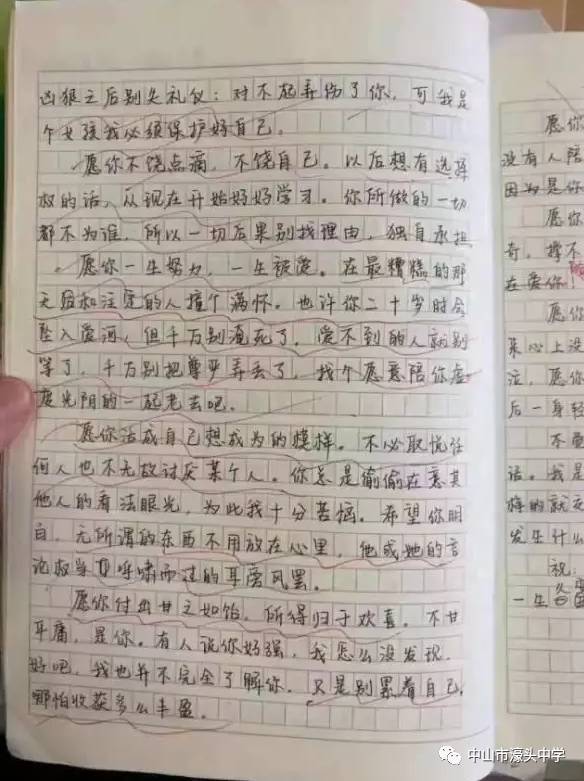 凶狠之后别失礼仪：对不起弄伤了你，可我是
个女孩我必须保护好自己。
愿你不饶点滴，不饶自己。以后想有选择
权的话，从现在开始好好学习。你所做的一切
都不为谁，所以一切后果别找理由，独自承担
。愿你一生努力，一生被爱。在最糟糕的那
天竟和注定的人撞个满怀。也许你二十岁时会
坠入爱河，但千万别淹死了，爱不到的人就别
等了，千万别把尊严弄丢了，找个愿意陪你虚
度光阴的一起老去吧。
愿你活成自己想成为的模样。不必取悦任
何人也不无故讨厌某个人。你总是偷偷在意其
他人的看法眼光，为此我十分苦恼。希望你明
白，无所谓的东西不用放在心里，他或她的言
论权当呼啸而过的耳旁风罢。
愿你付出甘之如饴，所得归于欢喜。不甘
平庸，是你。有人说你好强，我怎么没发现，
好吧，我也并不完全了解你，只是别累着自己，
哪怕收获多么丰盈。
愿你
没有人陪
因为是你
愿你
奇，撑不
在爱你
愿你
来心上没
泣，愿你
后一身轻
不要
话。我是
梅的就
发生什么
祝：
一生
中山市濠头中学